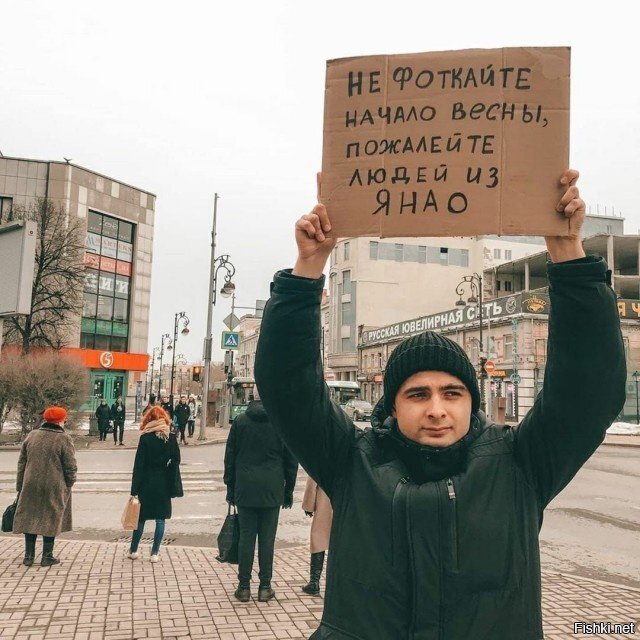 НЕ ФОТКАЙТЕ
НАЧАЛО ВЕСНЫ,
ПОЖАЛЕЙТЕ
ЛЮДЕЙ ИЗ
ЯНАО
РУССКАЯ ЮВЕЛИРНАЯ СЕТЬ
5
Fishki.net